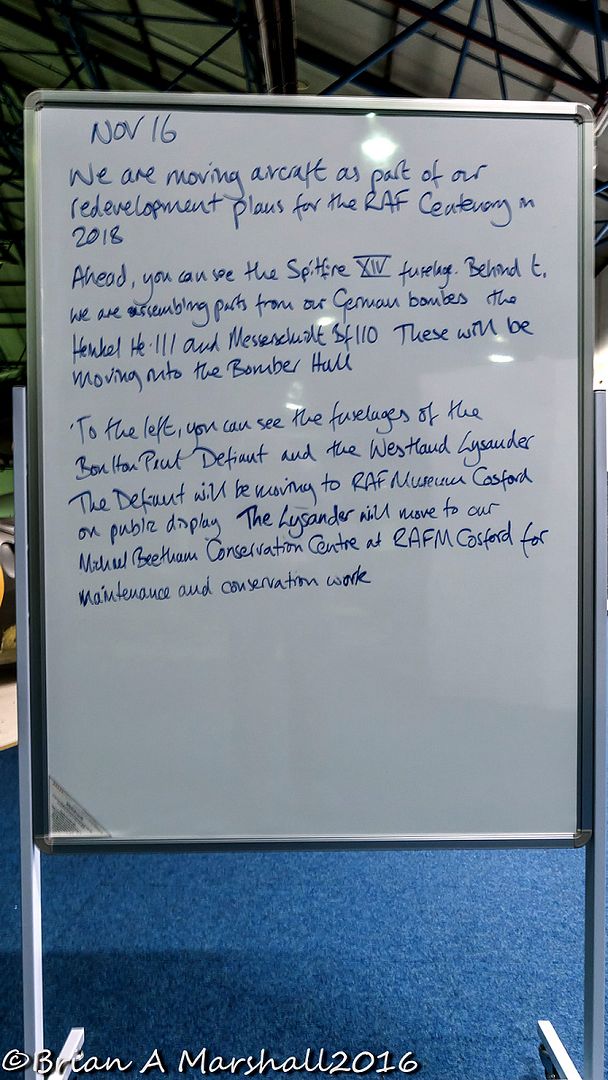 NOV 16
We are moving aircraft as part of our
redevelopment plans for the RAF Centenary in
2018
Ahead, you can see the Spitfire XIV fuselage. Behind it,
we are assembling parts from our German bombers the
Heinkel He.111 and Messerschmidt Bf110 These will be
moving into the Bomber Hall
To the left, you can see the fuselages of the
Boulton Paul Defiant and the Westland Lysander
The Defiant will be moving to RAF Museum Cosford
on public display The Lysander will move to our
Michael Beetham Conservation Centre at RAFM Cosford for
maintenance and conservation work
©Brian A Marshall2016